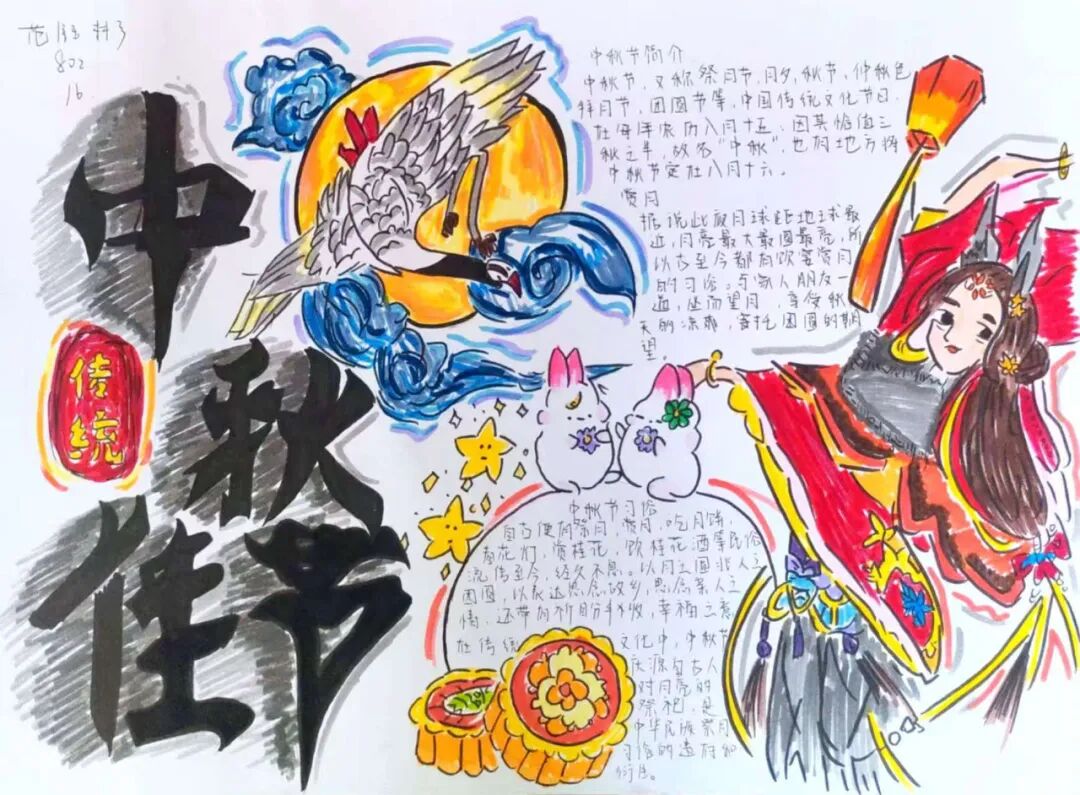 范
802
16
中秋佳节
传统
中秋节简介
中秋节,又称祭月节,月夕,秋节,仲秋色
拜月节,团圆节等,中国传统文化节日,
在每年农历八月十五,因其恰值三
秋之半,故名“中秋”,也有地方将
中秋节定在八月十六。
赏月
据说此夜月球距地球最
近,月亮最大最圆最亮,所
以古至今都有饮宴赏月
的习俗。与家人朋友一
道,坐而望月,享受秋
天的凉爽,寄托团圆的期
望。
中秋节习俗
自古便有祭月,赏月,吃月饼,
看花灯,赏桂花,饮桂花酒等民俗
流传至今,经久不息。以月之圆兆人之
团圆,以表达思念故乡,思念亲人之
情,还带有祈盼丰收,幸福之意
在传统文化中,中秋节
庆源自古人
对月亮的
祭祀,是
中华民族祭月
习俗的遗存和
衍生。